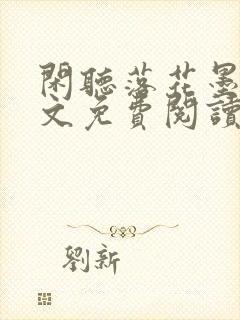 閑聽落花墨
文免費閱讀
劉新